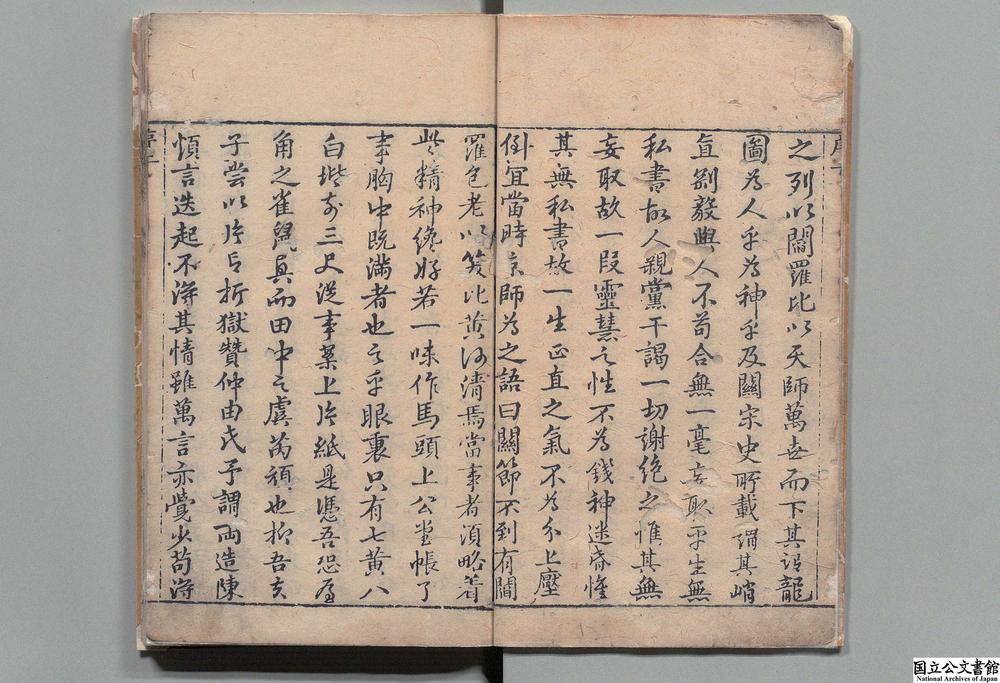 之列以閻羅比以天師萬世而下其龍
圖為人乎為神乎及閱宋史所載謂其峭
直剛毅與人不苟合無一毫妄取平生無
私書故人親黨干謁一切謝絕之惟其無
妄取故一段靈慧之性不為錢神迷昏惟
其無私書故一生正直之氣不為分上壓
倒宜當時京師為之語曰關節不到有閻
羅包老以笑比黃河清焉當事者須略着
此精神纔好若一味作馬頭上公堂帳了
事胸中既滿者也之乎眼裏只有七黃八
白堦前三尺從事案上片紙是憑吾恐屋
角之雀鼠真而田中之虞芮頑也抑吾夫
子嘗以片言折獄贊仲由氏予謂兩造陳
煩言迭起不得其情雖萬言亦覺少苟得
国立公文書館
National Archives of Japan